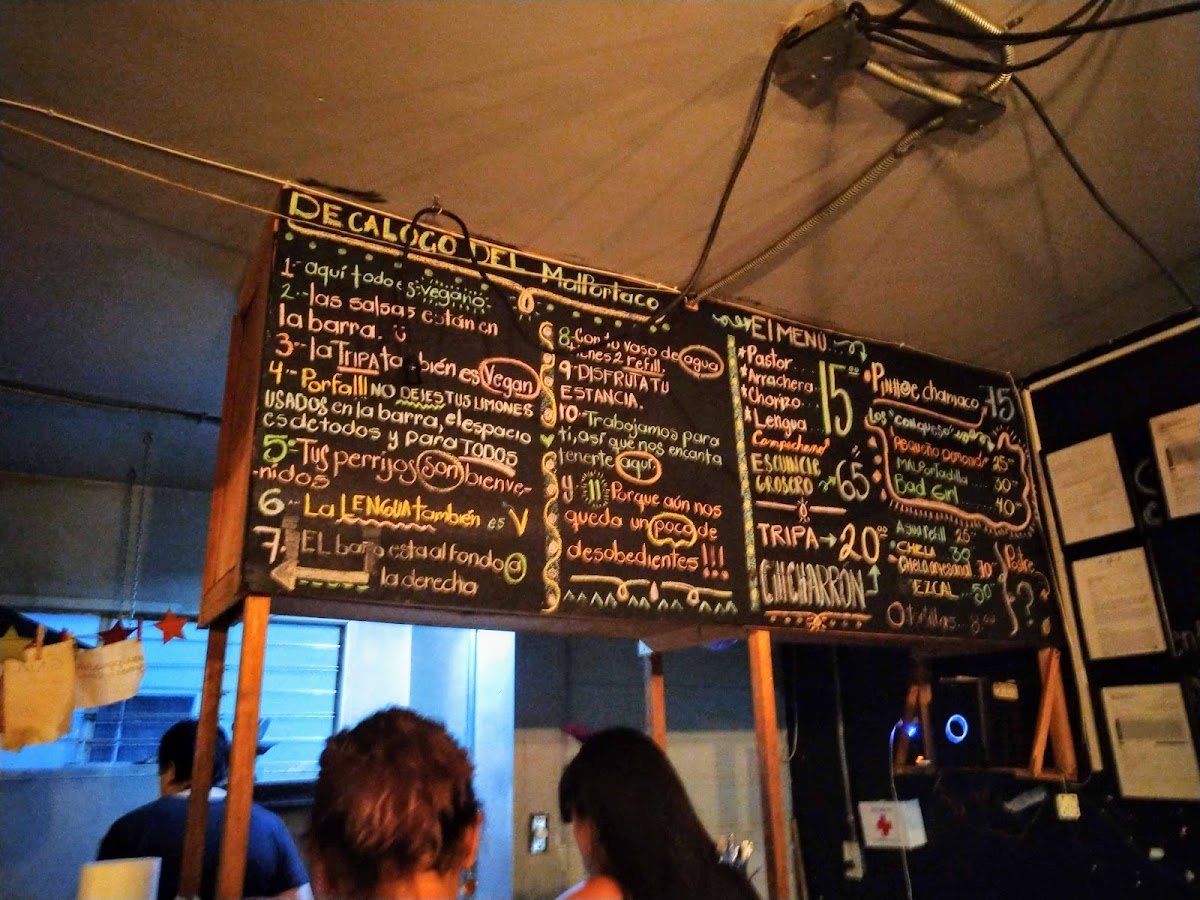 DECALOGO DEL MalPortaco
1- aquí todo es vegano
2- las salsas están en
la barra.
3- la TRIPA también es Vegan
4- Porfa!!! NO DEJES TUS LIMONES
USADOS en la barra, el espacio
es de todos y para TODOS
5- Tus perrijos son bienve-
nidos
6- La LENGUA también es V
7- EL baño esta al fondo a
la derecha
8- Con tu vaso de agua
tienes 2 refill.
9- DISFRUTA TU
ESTANCIA.
10- Trabajamos para
ti, así que nos encanta
tenerte aquí.
y 11 Porque aún nos
queda un poco de
desobedientes!!!
El MENÚ
*Pastor
*Arrachera
*Chorizo
*Lengua
15.00
Campechano
ESCUINCLE
GROSERO → 65
TRIPA → 20.00
CHICHARRÓN
• PIN#@E chamaco 75
LOS "CONQUESO"
Pequeño Demonio 25
MALPortadilla 30
Bad Girl 40
Agua Refill 25
• CHELA 30
• CHELA artesanal 70
MEZCAL 50
Postre
?